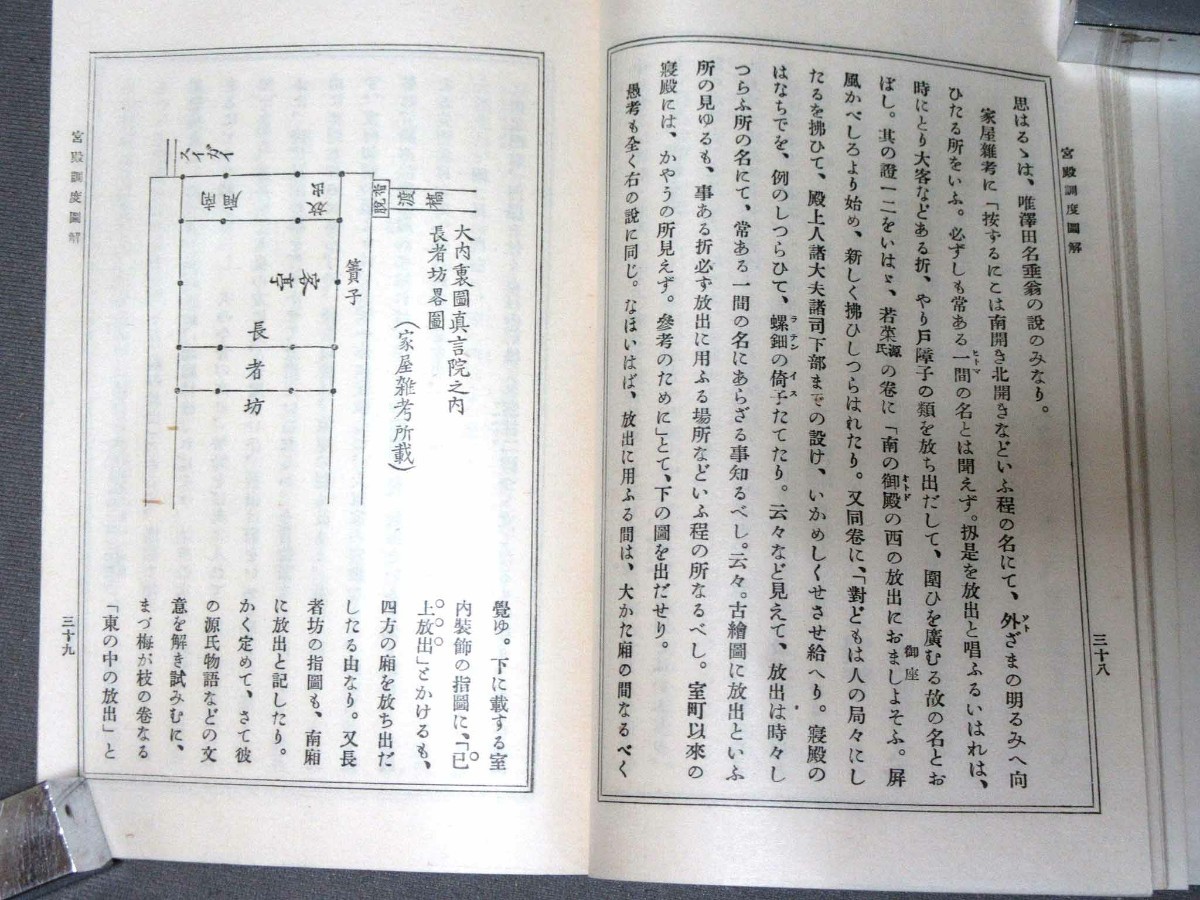 宮殿調度圖解
三十八
思はるゝは、唯澤田名垂翁の說のみなり。
家屋雜考に「按ずるにこは南開き北開きなどいふ程の名にて、外ざまの明るみへ向
ひたる所をいふ。必ずしも常ある一間の名とは聞えず。扨是を放出と唱ふるいはれは、
時にとり大客などある折、やり戸障子の類を放ち出だして、圍ひを廣むる故の名とお
ぼし。其の證一二をいはゞ、若菜源氏の卷に「南の御殿の西の放出におましよそふ。屏
風かべしろより始め、新しく拂ひしつらはれたり。又同卷に、「對どもは人の局々にし
たるを拂ひて、殿上人諸大夫諸司下部までの設け、いかめしくせさせ給へり。寢殿の
はなちでを、例のしつらひて、螺鈿の倚子たてたり。云々など見えて、放出は時々し
つらふ所の名にて、常ある一間の名にあらざる事知るべし。云々。古繪圖に放出といふ
所の見ゆるも、事ある折必ず放出に用ふる場所などいふ程の所なるべし。室町以來の
寢殿には、かやうの所見えず。參考のために」とて、下の圖を出だせり。
愚考も全く右の說に同じ。なほいはば、放出に用ふる間は、大かた廂の間なるべく
ヒトマ
ソト
オトド
御座
ラデン
イス
大内裏圖真言院之内
長者坊畧圖
(家屋雑考所載)
渡橋
沓脱
放出
簀子
客亭
長者坊
スイガイ
覺ゆ。下に載する室
内裝飾の指圖に、「已
上放出」とかけるも、
四方の廂を放ち出だ
したる由なり。又長
者坊の指圖も、南廂
に放出と記したり。
かく定めて、さて彼
の源氏物語などの文
意を解き試みむに、
まづ梅が枝の卷なる
「東の中の放出」と
宮殿調度圖解
三十九